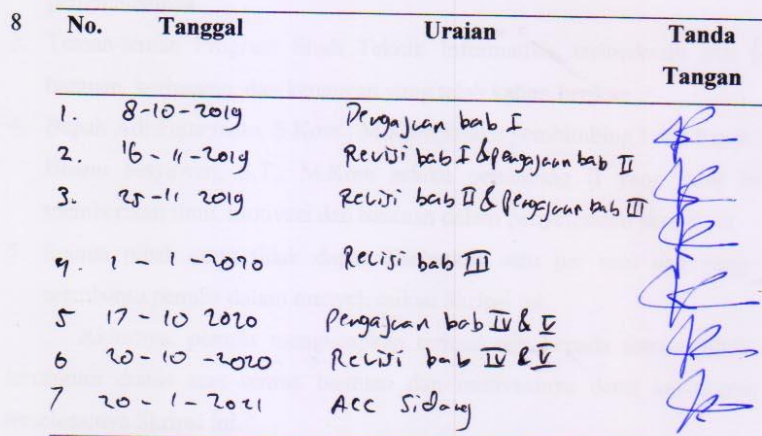 8 No. Tanggal Uraian Tanda Tangan
1. 8-10-2019 Pengajuan bab I
2. 16-11-2019 Revisi bab I & pengajuan bab II
3. 25-11-2019 Revisi bab II & pengajuan bab III
4. 1-1-2020 Revisi bab III
5 17-10 2020 pengajuan bab IV & V
6 20-10-2020 Revisi bab IV & V
7 20-1-2021 ACC Sidang